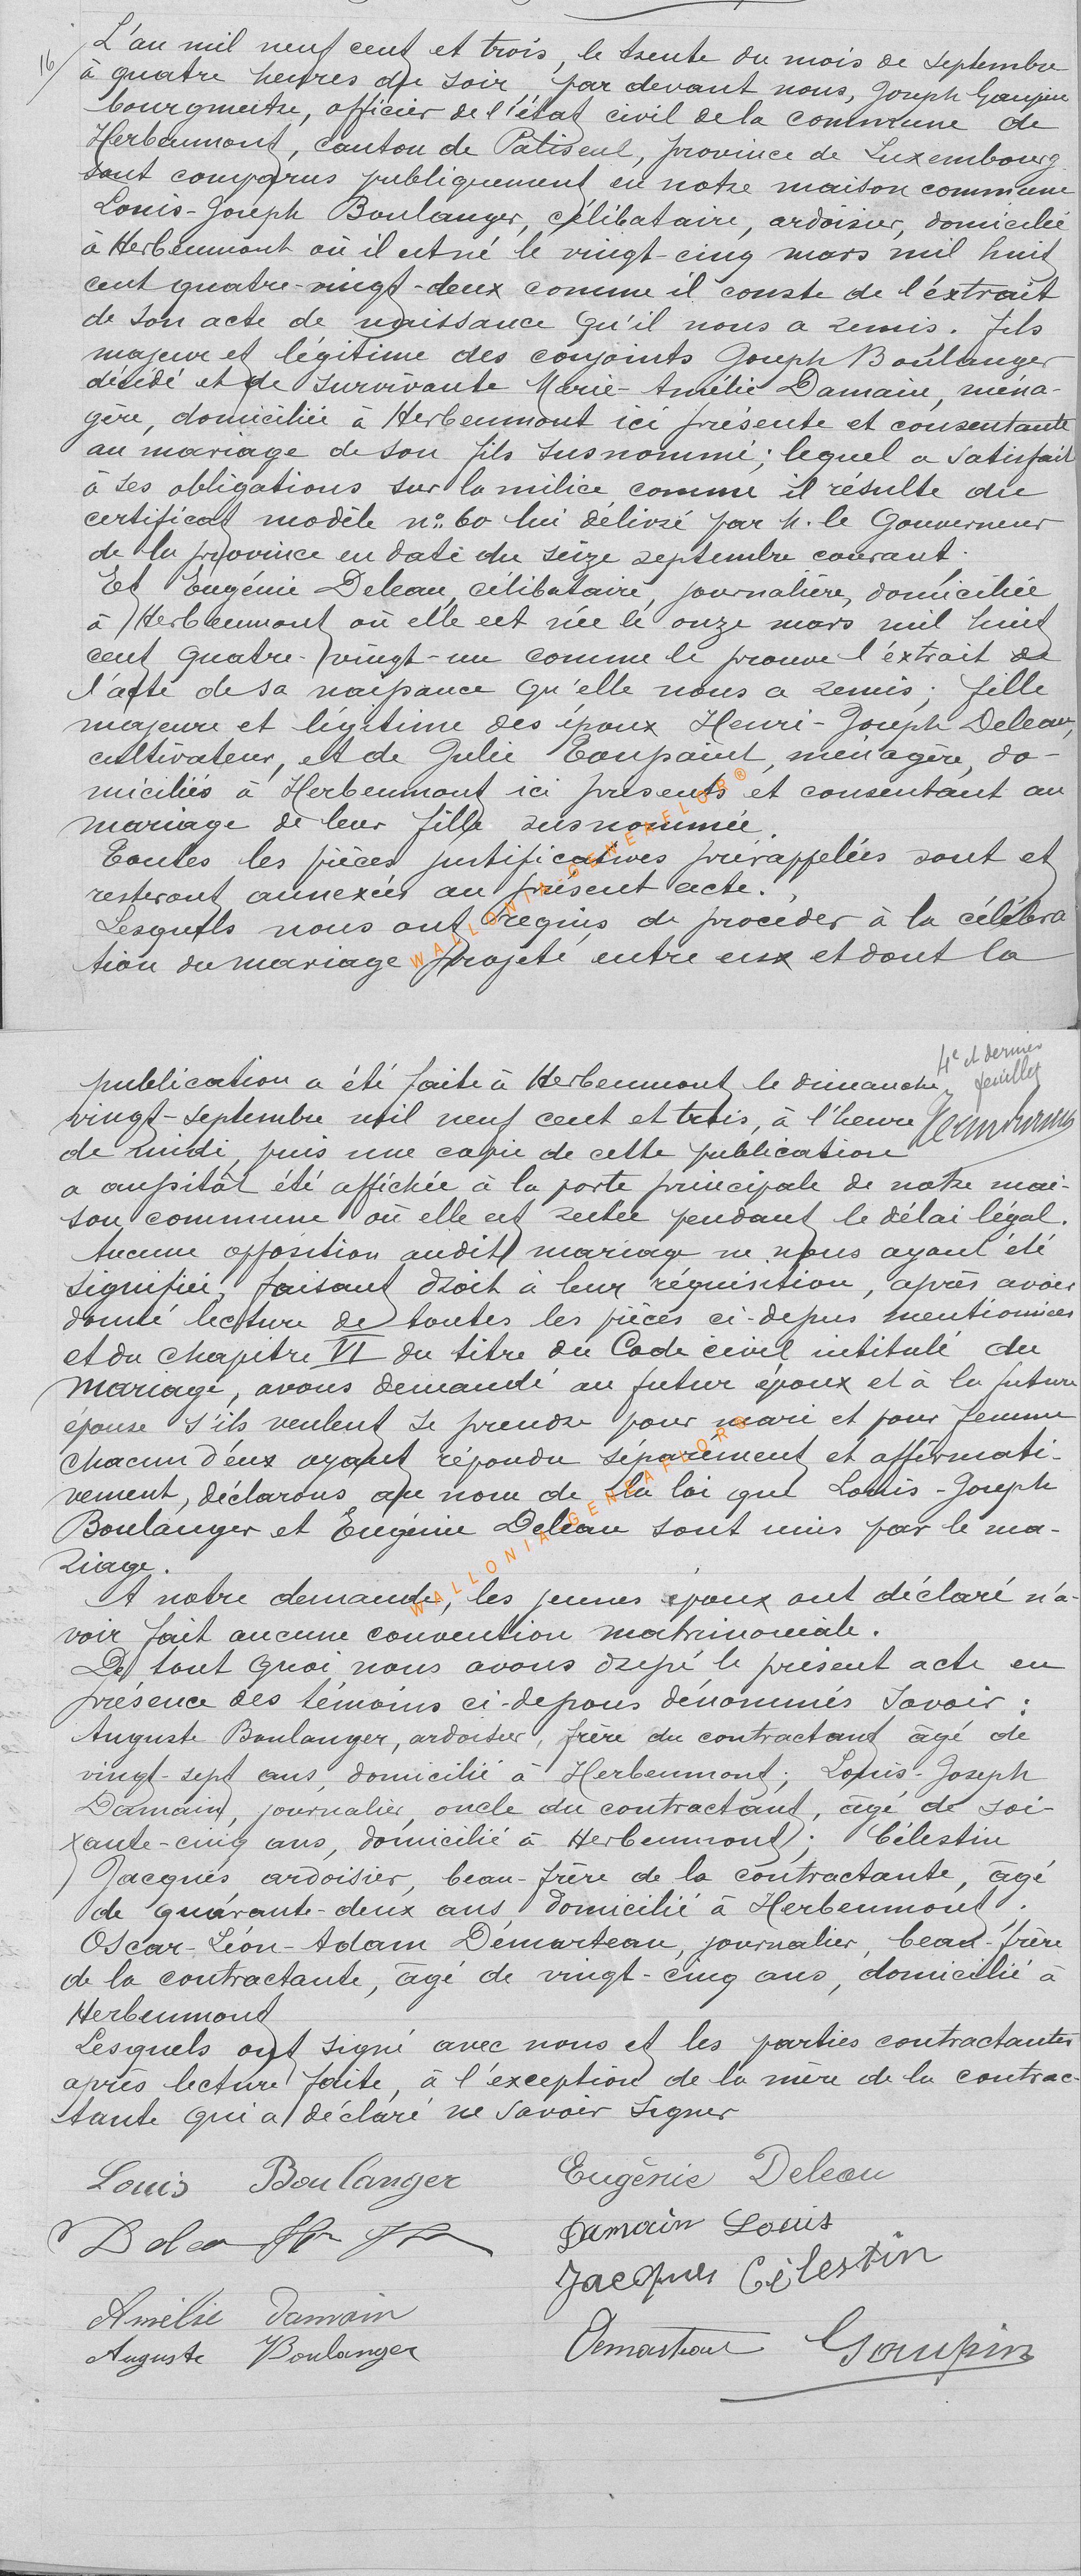 16/
L'an mil neuf cent et trois, le trente du mois de Septembre
à quatre heures du soir, par devant nous, Joseph Gaupin
bourgmestre, officier de l'état civil de la commune de
Herbeumont, canton de Paliseul, province de Luxembourg
sont comparus publiquement en notre maison commune
Louis-Joseph Boulanger, célibataire, ardoisier, domicilié
à Herbeumont où il est né le vingt-cinq mars mil huit
cent quatre-vingt-deux comme il conste de l'éxtrait
de son acte de naissance qu'il nous a remis. fils
majeur et légitime des conjoints Joseph Boulanger
décédé et de survivante Marie-Amélie Damain, ména-
gère, domiciliée à Herbeumont ici présente et consentante
au mariage de son fils susnommé; lequel a satisfait
à ses obligations sur la milice comme il résulte du
certificat modèle n° 60 lui délivré par M. le Gouverneur
de la province en date du seize septembre courant.
Et Eugénie Deleau, célibataire, journalière, domiciliée
à Herbeumont où elle est née le onze mars mil huit
cent quatre-vingt-un comme le prouve l'éxtrait de
l'acte de sa naissance qu'elle nous a remis; fille
majeure et légitime des époux Henri-Joseph Deleau,
cultivateur, et de Julie Toupaint, ménagère, do-
miciliés à Herbeumont ici présents et consentant au
mariage de leur fille susnommée.
Toutes les pièces justificatives prérappelées sont et
resteront annexées au présent acte.
Lesquels nous ont requis de procéder à la célébra
tion du mariage projeté entre eux et dont la
WALLONIA.GENEAFLOR®
4e et dernier
feuillet
publication a été faite à Herbeumont le dimanche
vingt-septembre mil neuf cent et trois, à l'heure
de midi, puis une copie de cette publication
a aussitôt été affichée à la porte principale de notre mai-
son commune où elle est restée pendant le délai légal.
Aucune opposition audit mariage ne nous ayant été
signifiée, faisant droit à leur réquisition, après avoir
donné lecture de toutes les pièces ci-dessus mentionnées
et du chapitre VI du titre du Code civil intitulé du
mariage, avons demandé au futur époux et à la future
épouse s'ils veulent se prendre pour mari et pour femme
chacun d'eux ayant répondu séparement et affirmati-
vement, déclarons au nom de la loi que Louis-Joseph
Boulanger et Eugénie Deleau sont unis par le ma-
riage.
WALLONIA.GENEAFLOR®
A notre demande, les jeunes époux ont déclaré n'a-
voir fait aucune convention matrimoniale.
De tout quoi nous avons dressé le présent acte en
présence des témoins ci-dessous dénommés savoir:
Auguste Boulanger, ardoisier, frère du contractant âgé de
vingt-sept ans, domicilié à Herbeumont; Louis-Joseph
Damain, journalier, oncle du contractant, âgé de soi-
xante-cinq ans, domicilié à Herbeumont; Célestin
Jacques ardoisier, beau-frère de la contractante, âgé
de quarante-deux ans, domicilié à Herbeumont;
Oscar-Léon-Adam Demarteau, journalier, beau-frère
de la contractante, âgé de vingt-cinq ans, domicilié à
Herbeumont
Lesquels ont signé avec nous et les parties contractantes
après lecture faite, à l'éxception de la mère de la contrac-
tante qui a déclaré ne savoir signer
Louis Boulanger
Eugénie Deleau
Damain Louis
Jacques Célestin
Amélie Damain
Auguste Boulanger
Demarteau
Gaupin